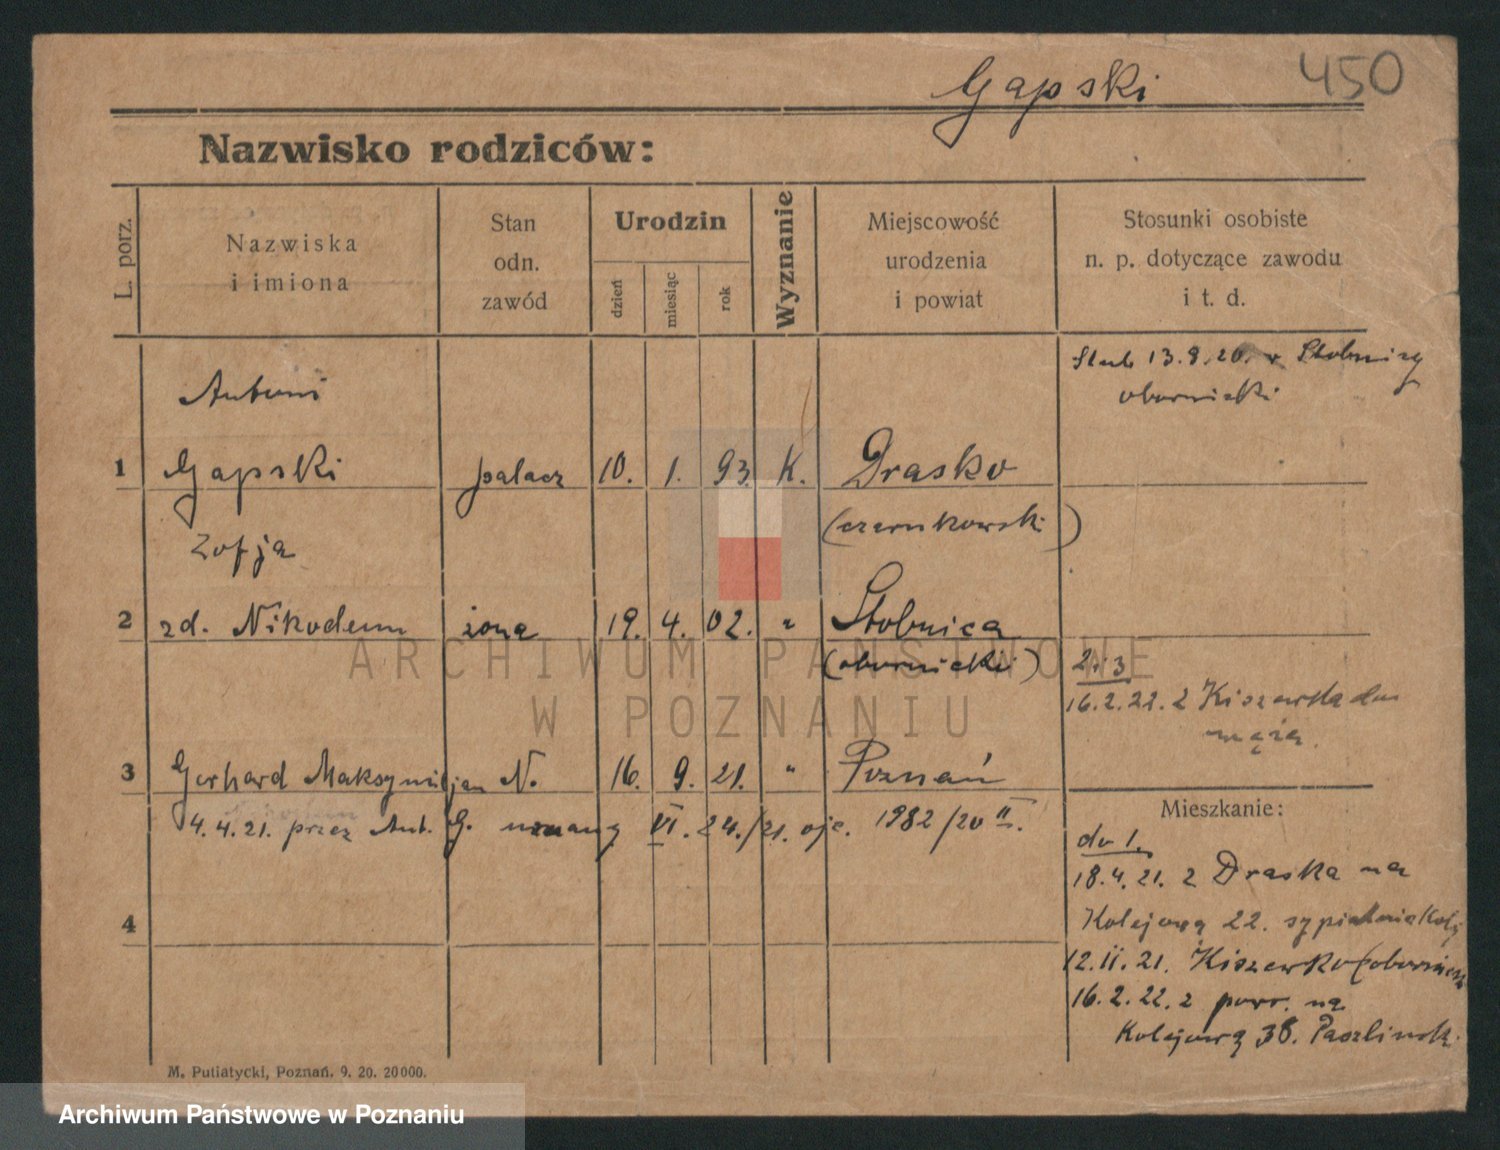 Gapski
450
Nazwisko rodziców:
L. porz.
Nazwiska
i imiona
Stan
odn.
zawód
Urodzin
dzień
miesiąc
rok
Wyznanie
Miejscowość
urodzenia
i powiat
Stosunki osobiste
n. p. dotyczące zawodu
i t. d.
Antoni
Ślub 13.9.20. w Stobnicy
obornicki
1 Gapski palacz 10. 1. 93. K. Drasko
(czarnkowski)
Zofja
2 zd. Nikodem żona 19. 4. 02. " Stobnica
(obornicki)
2 i 3
16.2.22. z Kiszewka do
męża.
3 Gerhard Maksymiljan N. 16. 9. 21. " Poznań
4.4.21. przez Ant. G. uznany VI. 24./21. 1982/20 II.
Mieszkanie:
do 1.
18.4.21. z Draska na
Kolejową 22.
4
12.11.21. Kiszewko (obornicki
16.2.22. z powr. na
Kolejową 38.
M. Putiatycki, Poznań. 9. 20. 20000.
ARCHIWUM PAŃSTWOWE
W POZNANIU
Archiwum Państwowe w Poznaniu